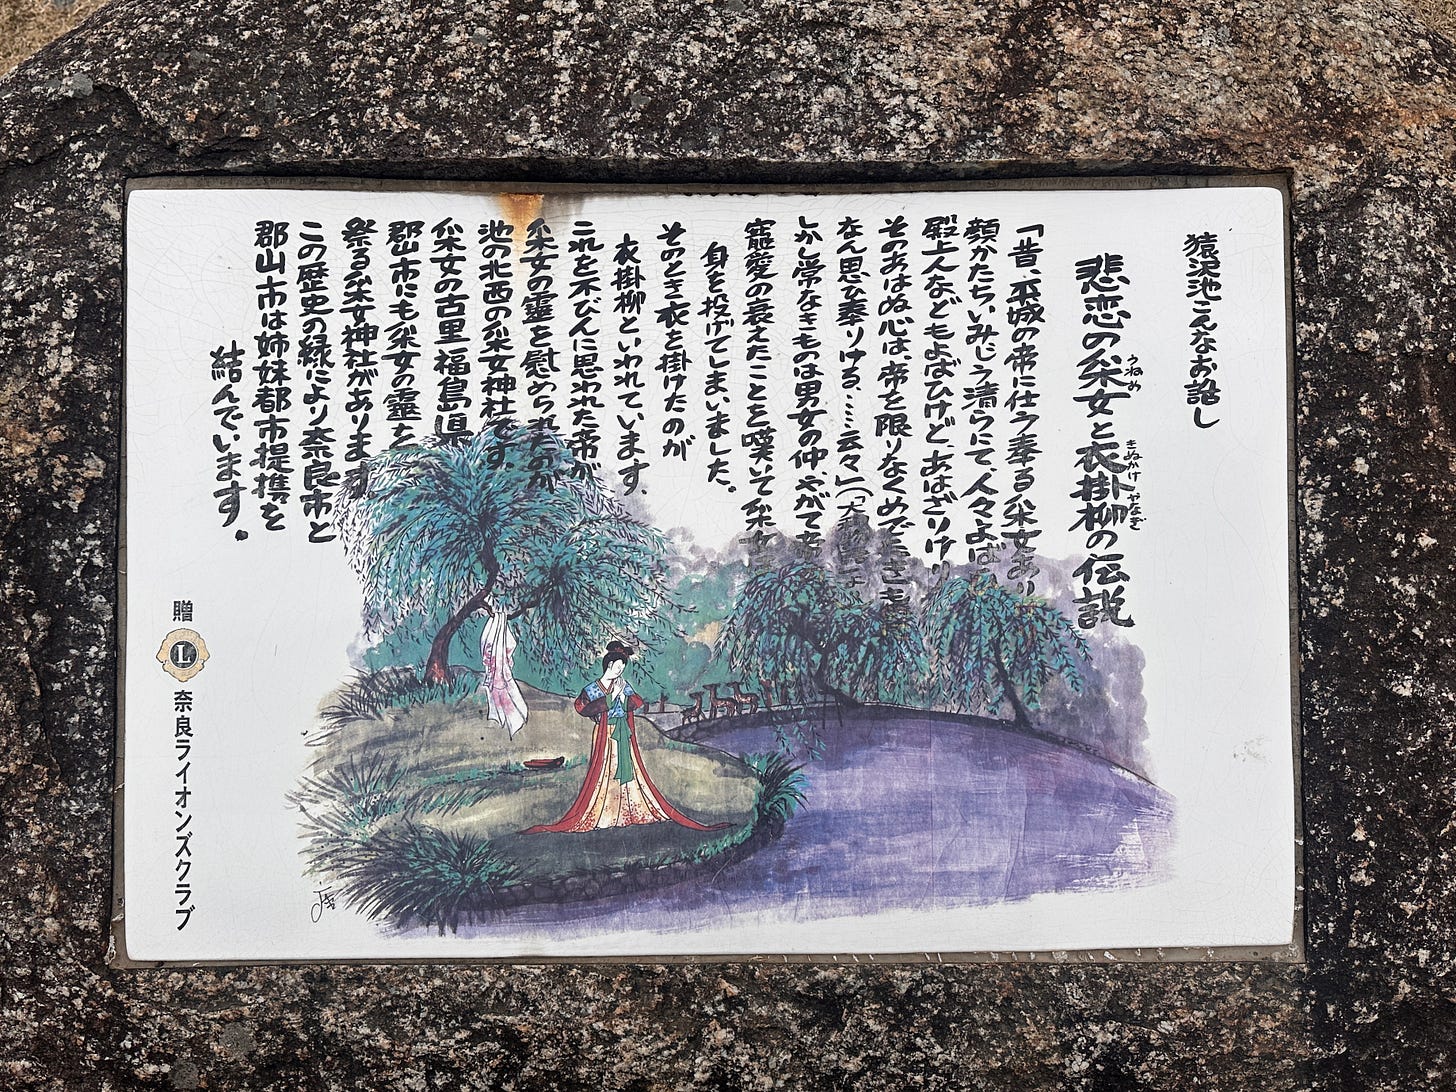 猿沢池こんなお話し
悲恋の采女と衣掛柳の伝説
うねめ
きぬかけやなぎ
「昔、平城の帝に仕う奉る采女あり
顔かたちいみじう清らにて、人々よば
殿上人などもよばひけど、あはざりけり
そのあはぬ心は、帝を限りなくめでたき
なん思ひ奉りける……云々」(「大和物語」
しかし常なきものは男女の仲、やがて
寵愛の衰えたことを嘆いて采女
身を投げてしまいました。
そのとき衣を掛けたのが
衣掛柳といわれています。
これを不びんに思われた帝が
采女の霊を慰められたのが
池の北西の采女神社です。
采女の古里 福島県
郡山市にも采女の霊を
祭る采女神社があります
この歴史の縁により奈良市と
郡山市は姉妹都市提携を
結んでいます。
贈
L
奈良ライオンズクラブ